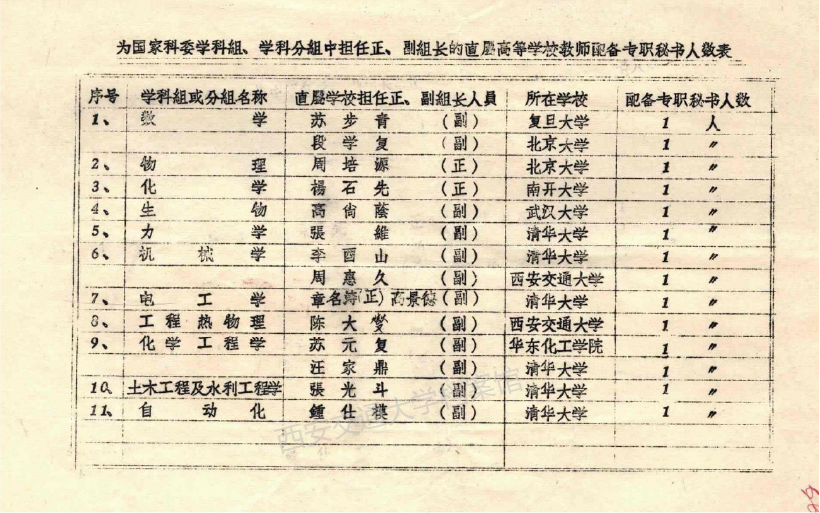 为国家科委学科組、学科分組中担任正、副組长的直屬高等学校教师配备专职秘书人数表
序号 学科組或分組名称 直屬学校担任正、副組长人員 所在学校 配备专职秘书人数
1、 数学 苏步青 (副) 复旦大学 1 人
段学复 (副) 北京大学 1 〃
2、 物理 周培源 (正) 北京大学 1 〃
3、 化学 楊石先 (正) 南开大学 1 〃
4、 生物 高尙蔭 (副) 武汉大学 1 〃
5、 力学 張維 (副) 清华大学 1 〃
6、 机械学 李酉山 (副) 清华大学 1 〃
周惠久 (副) 西安交通大学 1 〃
7、 电工学 章名涛(正) 高景德(副) 清华大学 1 〃
8、 工程热物理 陈大燮 (副) 西安交通大学 1 〃
9、 化学工程学 苏元复 (副) 华东化工学院 1 〃
汪家鼎 (副) 清华大学 1 〃
10、 土木工程及水利工程学 張光斗 (副) 清华大学 1 〃
11、 自动化 鍾仕模 (副) 清华大学 1 〃
西安交通大学档案馆